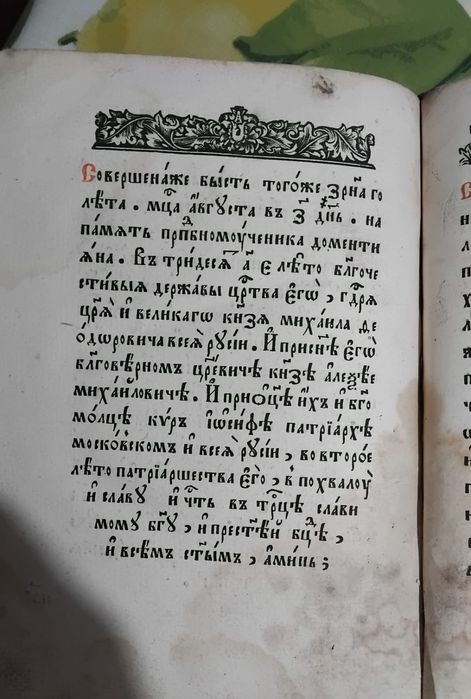 Совершена́же бы́сть того́же ҂зр҃на го
лѣ́та . мⷭ҇ца а҆́ѵгꙋста въ з҃ дн҃ь . на
па́мѧть прпⷣбномоу́ченика дометти
ѧ́на . Въ три́десѧⷮ а҃ є лѣ́то бл҃гоче
сти́выѧ держа́вы црⷭ҇тва є҆гѡ̀ , гдⷭ҇рѧ
цр҃ѧ̀ и҆ вели́кагѡ кн҃зѧ михаи́ла ѳе
ѻ҆́дѡровича всеѧ̀ рꙋсі́и . И҆ присн҃ѣ є҆гѡ̀
бл҃гове́рномъ цр҃е́вичѣ кн҃зѣ а҆леѯѣ́е
миха́йловичѣ . И҆ приѻ҆ц҃ѣ и҆́хъ и҆ бг҃о
мо́лцѣ кѵ́ръ і҆ѡ́сифѣ патрїа́рхѣ
моско́вскомъ и҆ всеѧ̀ рꙋсі́и , во второ́е
лѣ́то патрїа́ршества є҆го̀ , в̾ похвалоу̀
и҆ сла́вꙋ и҆ чⷭ҇ть въ трⷪ҇цѣ сла́ви
момꙋ бг҃ꙋ , и҆ престⷭ҇ѣ́й бц҃ѣ ,
и҆ всѣ́мъ ст҃ы́мъ , а҆ми́нь ;